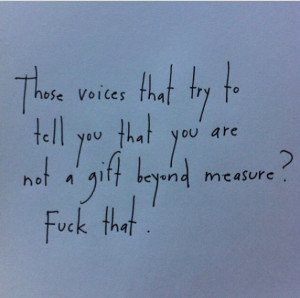 Those voices that try to
tell you that you are
not a gift beyond measure?
Fuck that.